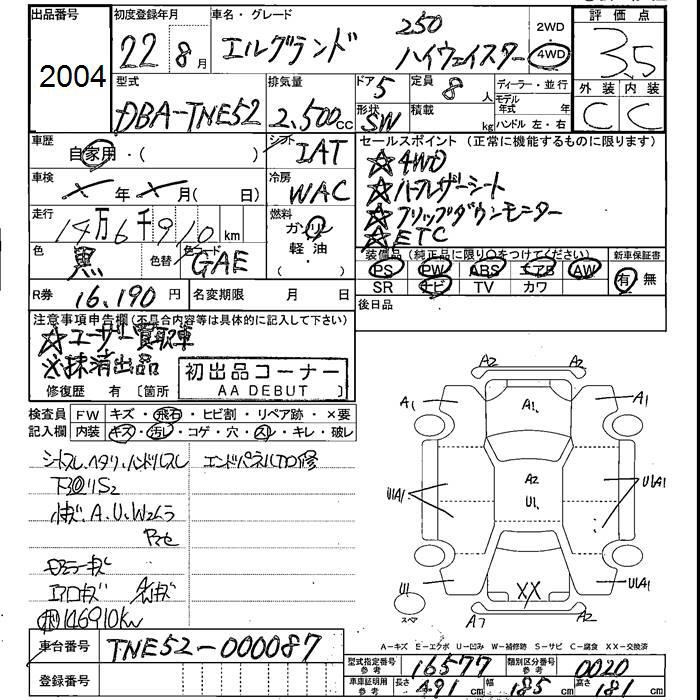 出品番号 初度登録年月 車名・グレード 2WD 評価点
2004 22年 8月 エルグランド 250 ハイウェイスター 4WD 3.5
型式 排気量 ドア 5 定員 8人 ディーラー・並行 外装 内装
DBA-TNE52 2,500cc 形状 SW 積載 kg モデル年式 年 C C
ハンドル 左・右
車歴 自家用・( ) シフト IAT セールスポイント (正常に機能するものに限ります)
車検 年 月( 日) 冷房 WAC ☆4WD
☆ハーフレザーシート
走行 14万6千910km 燃料 ガソリン 軽油 ・ ☆フリップダウンモニター
☆ETC
色 黒 色替 色コード GAE 装備品(純正品に限り○をつけてください) 新車保証書
PS PW ABS エアB AW 有 無
SR ナビ TV カワ
R券 16,190円 名変期限 月 日 後日品
注意事項申告欄(不具合内容等は具体的に記入して下さい)
☆ユーザー買取車
※抹消出品
初出品コーナー
AA DEBUT
修復歴 有 [箇所
検査員 FW キズ・飛石・ヒビ割・リペア跡・×要
記入欄 内装 キズ・汚レ・コゲ・穴・スレ・キレ・破レ
シートスレ、ヘタリ、ハンドルスレ エンドパネル
A、U、W2ムラ
146910km
車台番号 TNE52-000087
登録番号
A2 A2
A1 A1 A1
A2
U1
U1A1 U1A1
XX
U1 U1A1
スペア A7 A2
A-キズ E-エクボ U-凹み W-補修跡 S-サビ C-腐食 XX-交換済
型式指定番号 参考 16577 類別区分番号 参考 0020
車庫証明用 参考 長さ 491cm 幅 185cm 高さ 181cm